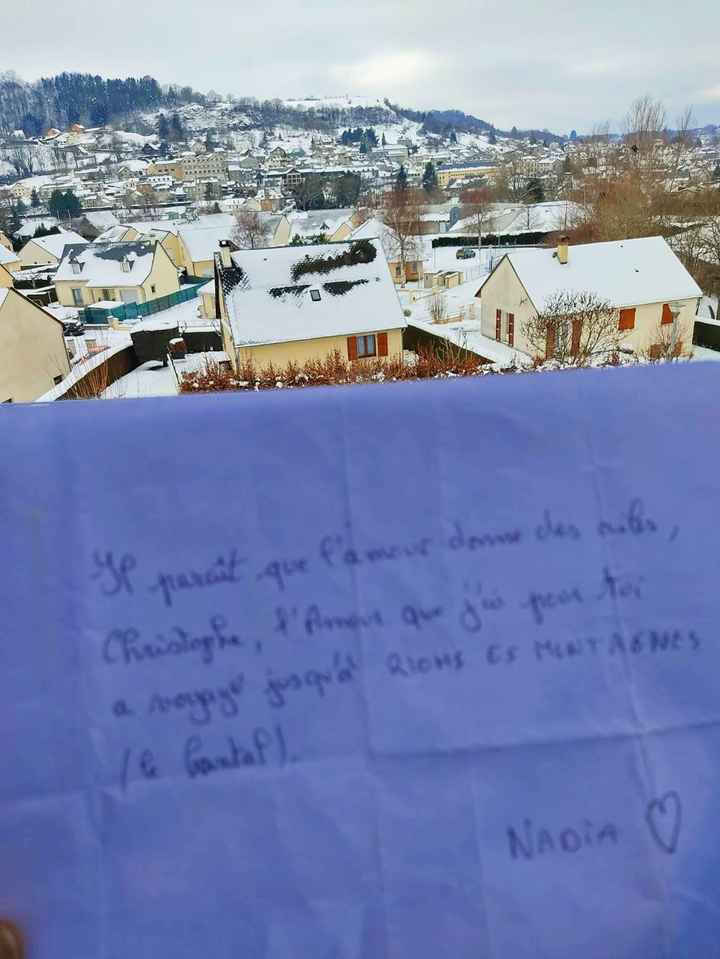 Il paraît que l'amour donne des ailes,
Christophe, l'Amour que j'ai pour toi
a voyagé jusqu'à RIOMS ES MONTAGNES
(le Cantal).
NADIA ♡